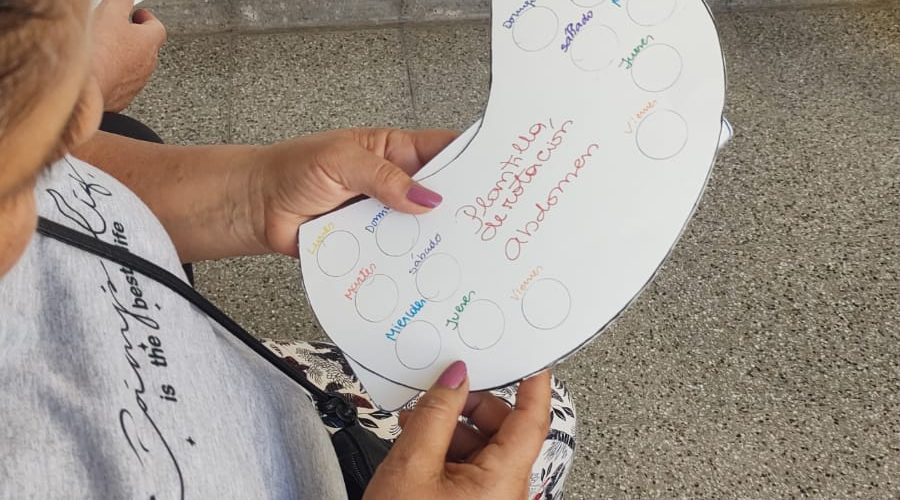 Domingo
Sábado
Jueves
Viernes
Plantilla
de rotación
abdomen
Lunes
Domin
Martes
Sábado
Miercoles
Jueves
Viernes
is the best life